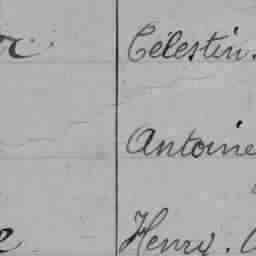 Célestin.
Antoine
Henry.